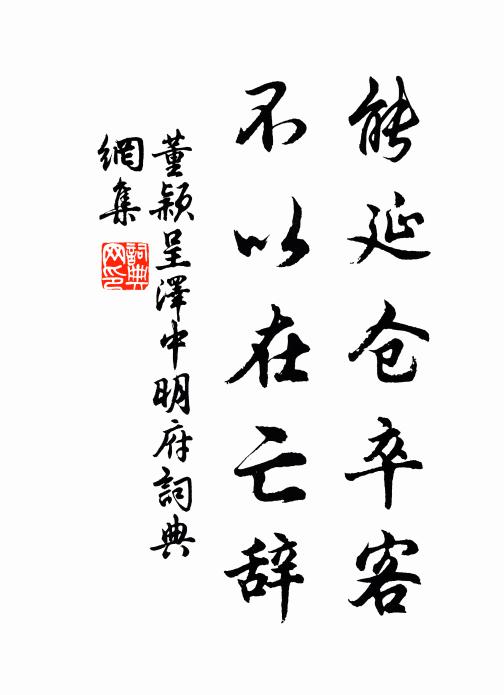 能延仓卒客
不以在亡辞
董颖呈澤中明府詞典
網集
詞典網印